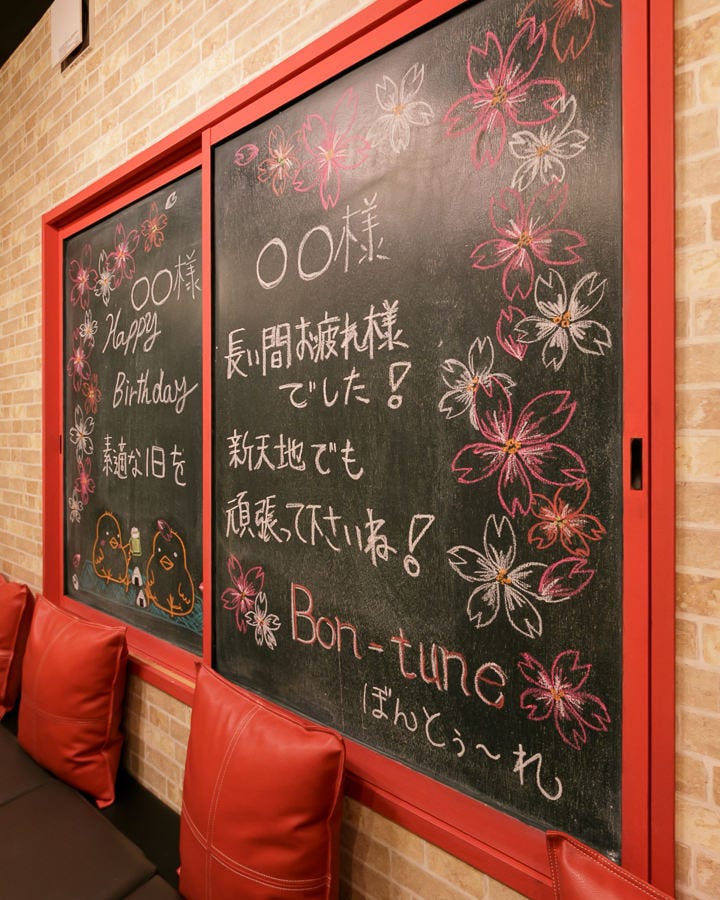 ○○様
Happy
Birthday
素適な1日を
○○様
長い間お疲れ様
でした!
新天地でも
頑張って下さいね!
Bon-tune
ぼんとぅ〜れ